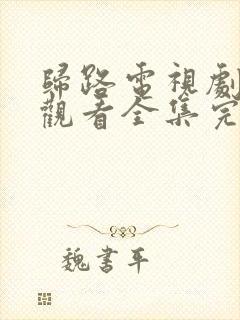 歸路電視劇
觀看全集完
魏書平